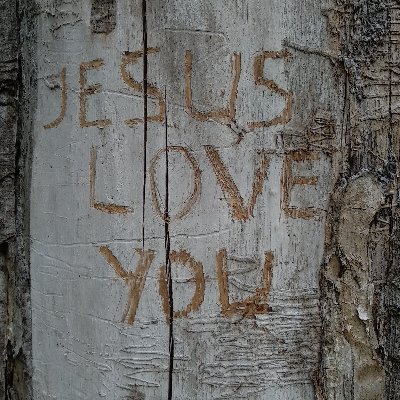 JESUS
LOVE
YOU